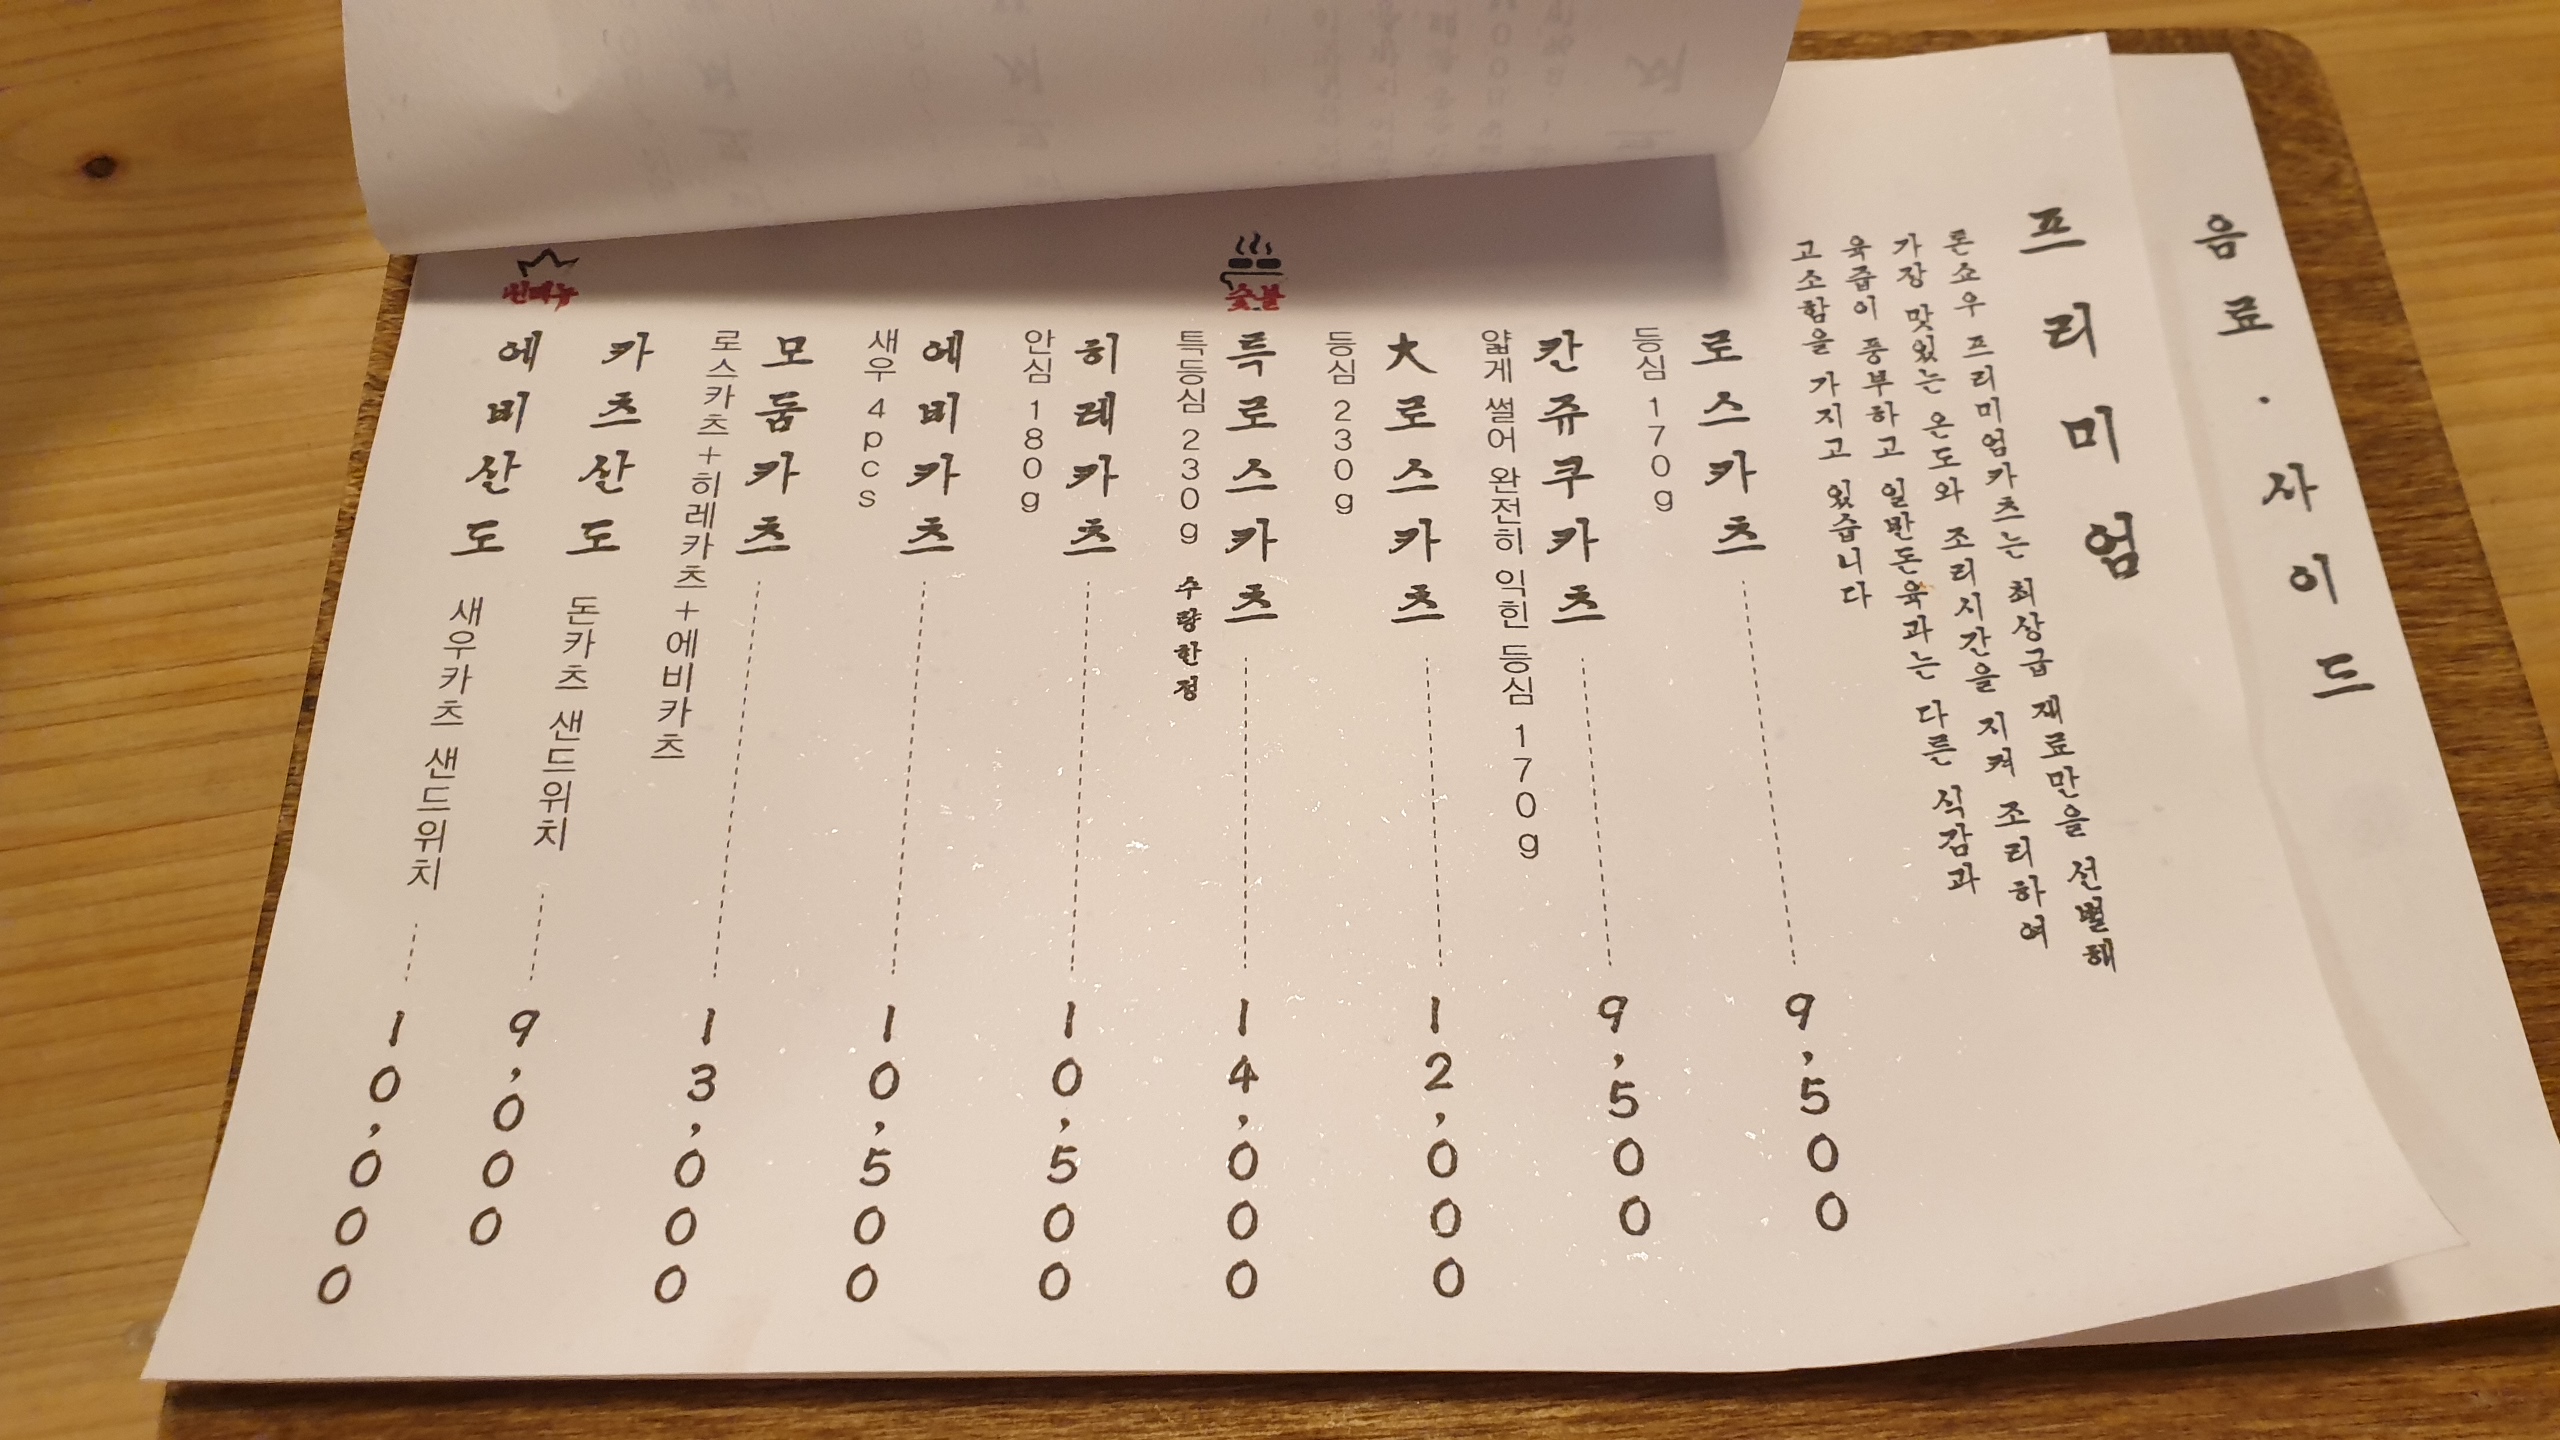 음료·사이드
프리미엄
톤쇼우 프리미엄카츠는 최상급 재료만을 선별해
가장 맛있는 온도와 조리시간을 지켜 조리하여
육즙이 풍부하고 일반돈육과는 다른 식감과
고소함을 가지고 있습니다
로스카츠 9,500
등심 170g
칸쥬쿠카츠 9,500
얇게 썰어 완전히 익힌 등심 170g
大로스카츠 12,000
등심 230g
숯불
특로스카츠 14,000
특등심 230g 수량한정
히레카츠 10,500
안심 180g
에비카츠 10,500
새우 4pcs
모둠카츠 13,000
로스카츠+히레카츠+에비카츠
카츠산도 돈카츠 샌드위치 9,000
신메뉴
에비산도 새우카츠 샌드위치 10,000